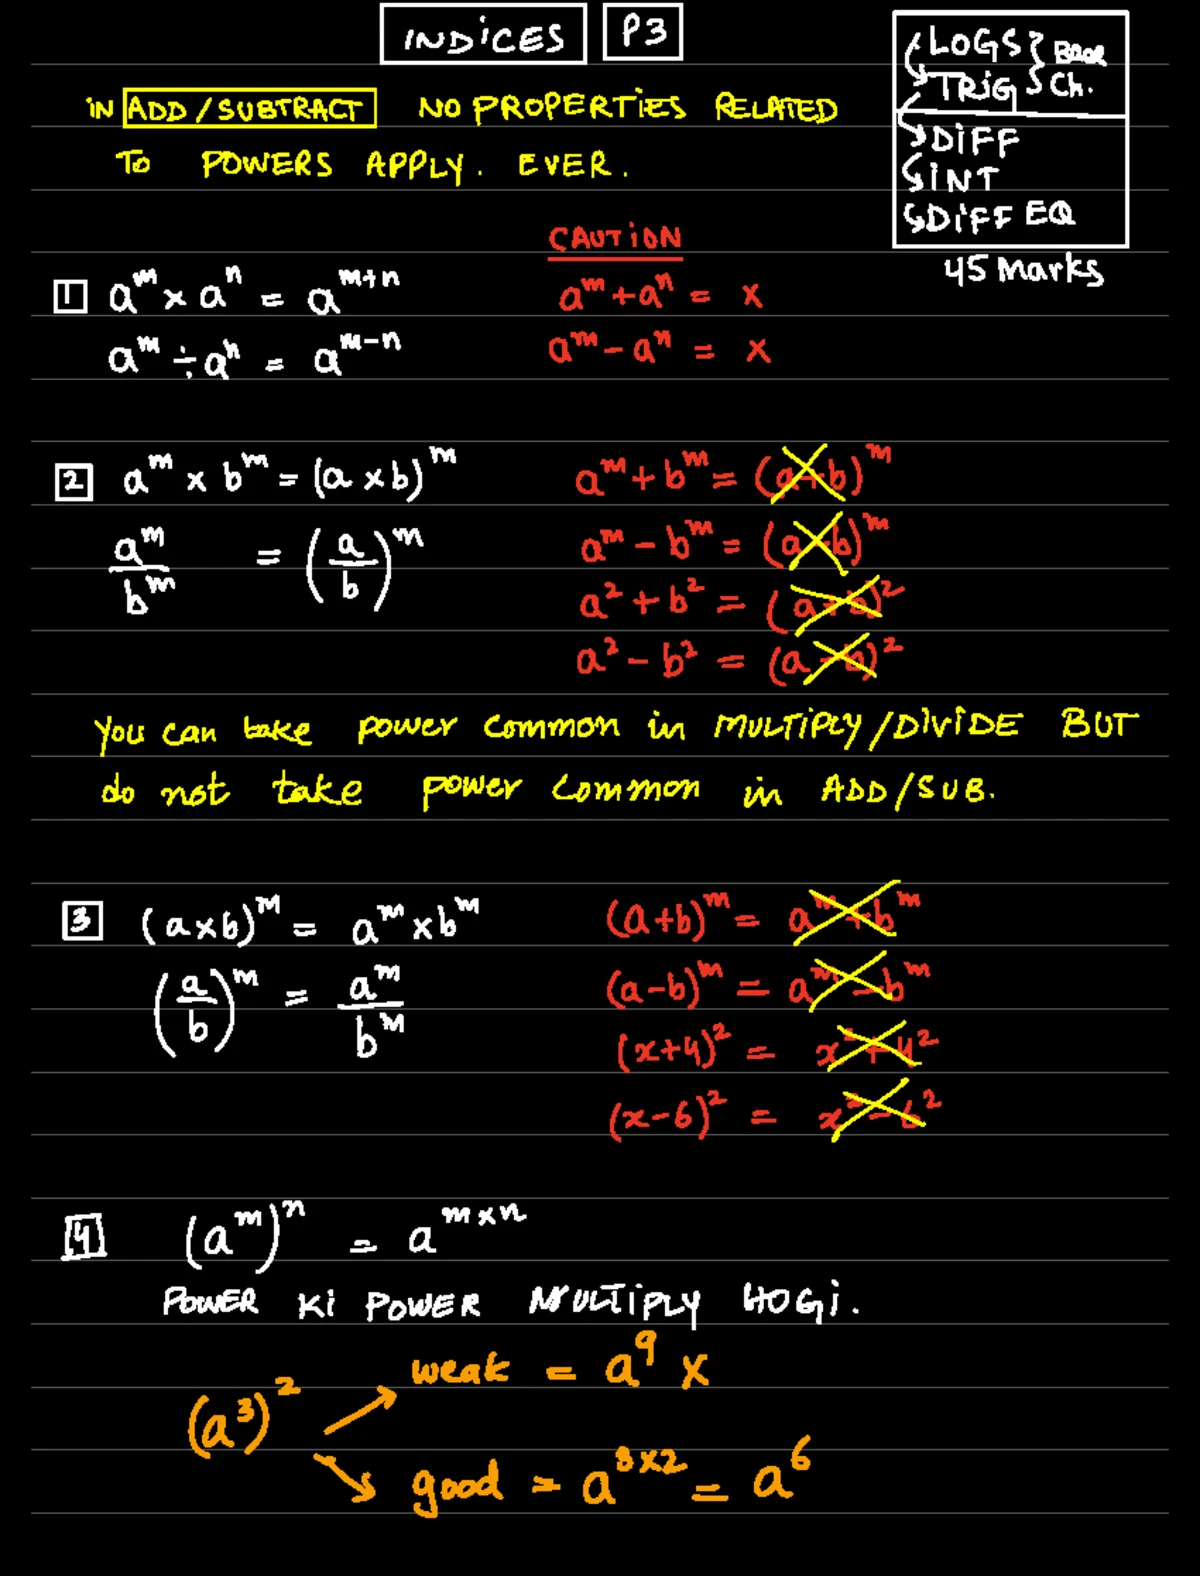 INDICES P3
LOGS } Base
TRIG } Ch.
DIFF
INT
DIFF EQ
45 Marks
IN ADD/SUBTRACT NO PROPERTIES RELATED
TO POWERS APPLY. EVER.
CAUTION
1 a^m × a^n = a^(m+n)
a^m + a^n = x
a^m ÷ a^n = a^(m-n)
a^m - a^n = x
2 a^m × b^m = (a × b)^m
a^m + b^m = (a+b)^m
a^m / b^m = (a/b)^m
a^m - b^m = (a-b)^m
a² + b² = (a+b)²
a² - b² = (a-b)²
You can take power common in MULTIPLY/DIVIDE BUT
do not take power common in ADD/SUB.
3 (a×b)^m = a^m × b^m
(a+b)^m = a^m + b^m
(a/b)^m = a^m / b^m
(a-b)^m = a^m - b^m
(x+4)² = x² + 4²
(x-6)² = x² - 6²
4 (a^m)^n = a^(m×n)
POWER KI POWER MULTIPLY HOGI.
(a³)²
weak = a⁹ x
good = a^(3×2) = a⁶